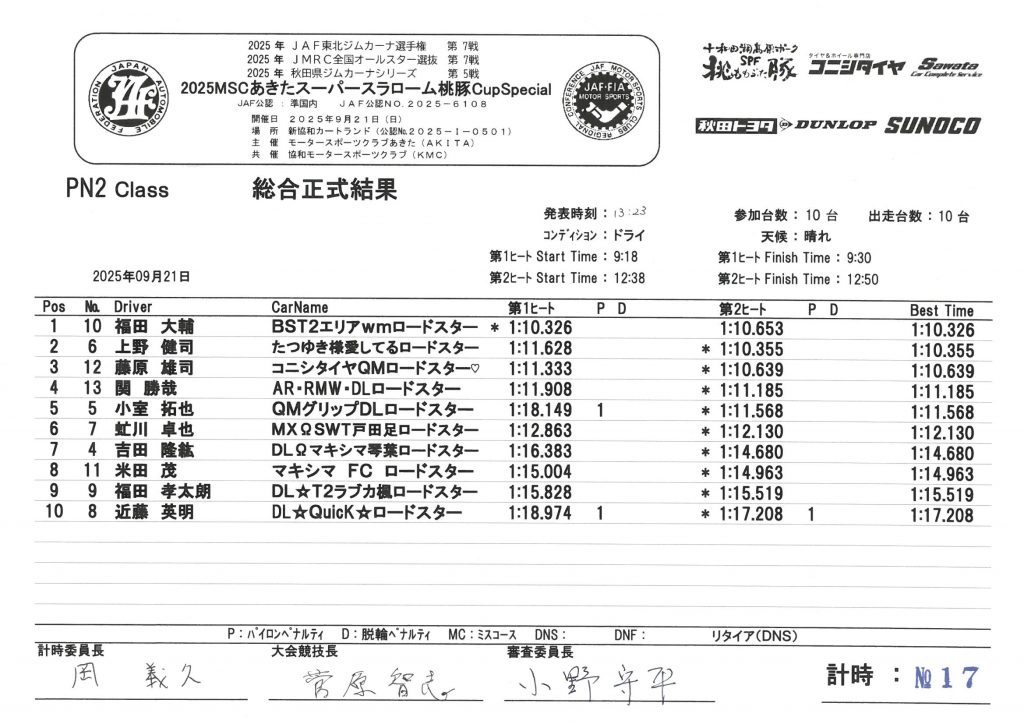 2025 年 JAF東北ジムカーナ選手権 第 7戦
2025 年 JMRC全国オールスター選抜 第 7戦
2025 年 秋田県ジムカーナシリーズ 第 5戦
2025MSCあきたスーパースラローム桃豚CupSpecial
JAF公認：準国内 JAF公認NO.2025-6108
開催日 2025年9月21日（日）
場 所 新協和カートランド（公認№2025-I-0501）
主 催 モータースポーツクラブあきた（AKITA）
共 催 協和モータースポーツクラブ（KMC）
JAPAN AUTOMOBILE FEDERATION
JAF
JAF MOTOR SPORTS CLUBS REGIONAL CONFERENCE
JAF·FIA
MOTOR SPORTS
十和田湖高原ポーク
桃ももぶた豚
SPF
タイヤ&ホイール専門店
コニシタイヤ
Sawata
Car Complete Service
秋田トヨタ DUNLOP SUNOCO
PN2 Class 総合正式結果
発表時刻：13:23 参加台数：10 台 出走台数：10 台
コンディション：ドライ 天候：晴れ
第1ヒート Start Time：9:18 第1ヒート Finish Time：9:30
2025年09月21日 第2ヒート Start Time：12:38 第2ヒート Finish Time：12:50
Pos №. Driver CarName 第1ヒート P D 第2ヒート P D Best Time
1 10 福田 大輔 BST2エリアwmロードスター * 1:10.326 1:10.653 1:10.326
2 6 上野 健司 たつゆき様愛してるロードスター 1:11.628 * 1:10.355 1:10.355
3 12 藤原 雄司 コニシタイヤQMロードスター♡ 1:11.333 * 1:10.639 1:10.639
4 13 関 勝哉 AR・RMW・DLロードスター 1:11.908 * 1:11.185 1:11.185
5 5 小室 拓也 QMグリップDLロードスター 1:18.149 1 * 1:11.568 1:11.568
6 7 虻川 卓也 MXΩSWT戸田足ロードスター 1:12.863 * 1:12.130 1:12.130
7 4 吉田 隆紘 DLΩマキシマ琴葉ロードスター 1:16.383 * 1:14.680 1:14.680
8 11 米田 茂 マキシマ FC ロードスター 1:15.004 * 1:14.963 1:14.963
9 9 福田 孝太朗 DL☆T2ラブカ楓ロードスター 1:15.828 * 1:15.519 1:15.519
10 8 近藤 英明 DL☆QuicK☆ロードスター 1:18.974 1 * 1:17.208 1 1:17.208
P：パイロンペナルティ D：脱輪ペナルティ MC：ミスコース DNS： DNF： リタイア(DNS)
計時委員長 大会競技長 審査委員長
岡 義久 菅原智恵 小野守平
計時 ： №17